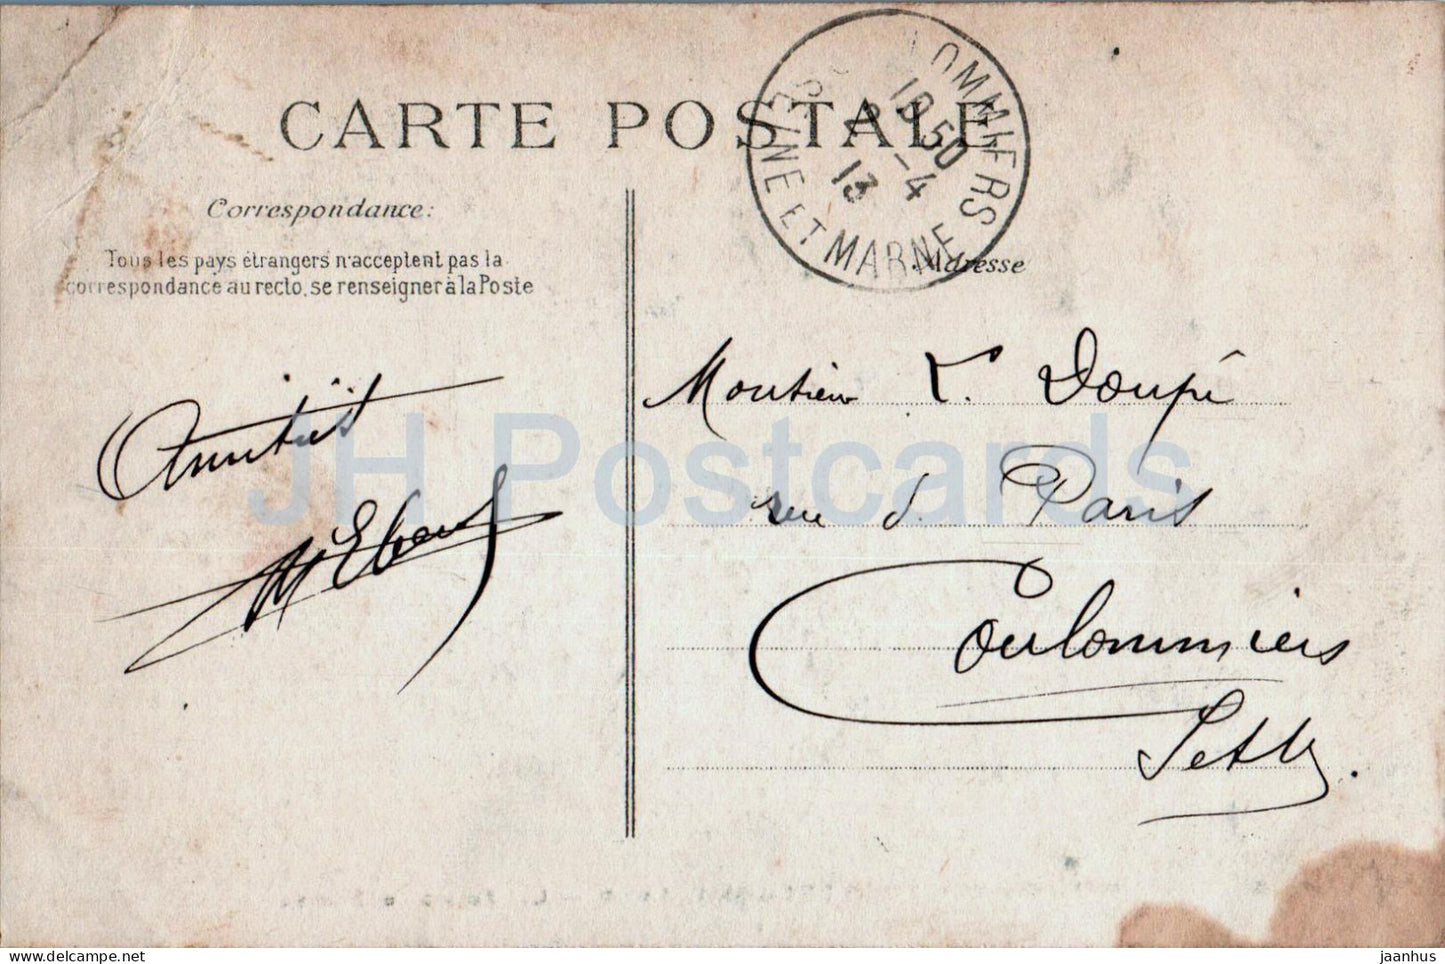 CARTE POSTALE
Correspondance:
Tous les pays étrangers n'acceptent pas la
correspondance au recto, se renseigner à la Poste
OMMIERS
18 50
-4
13
SEINE ET MARNE
Adresse
Amitiés
Monsieur L. Doupé
rue d. Paris
Coulommiers
S et M.
JH Postcards
jaanhus